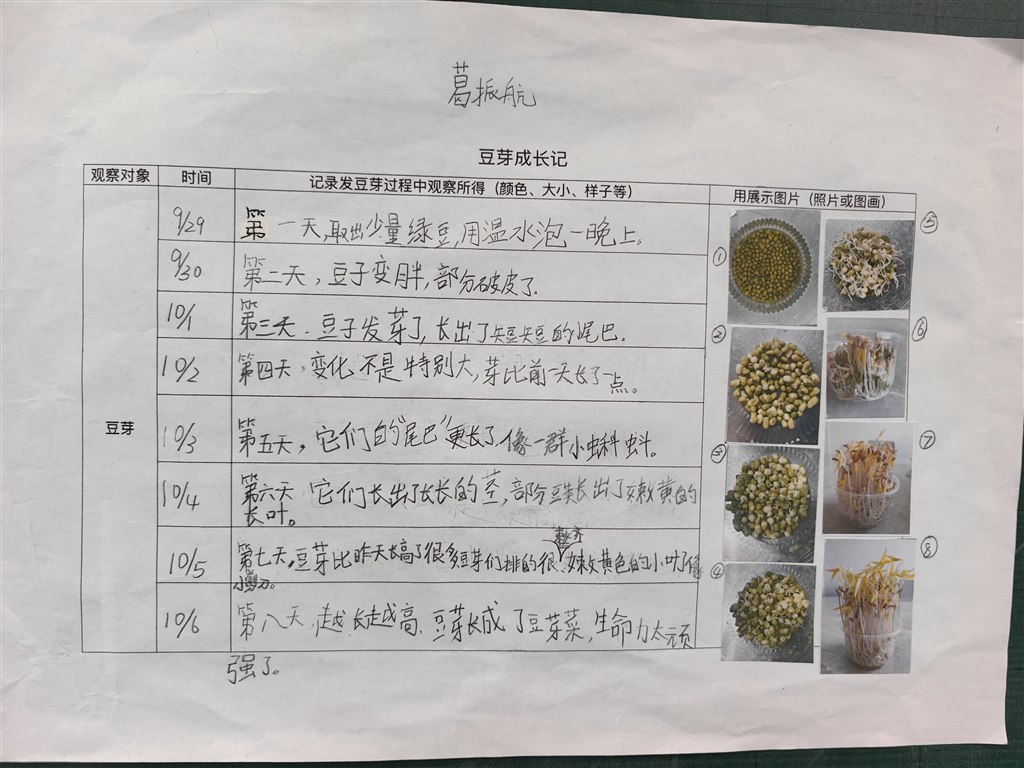 葛振航
豆芽成长记
观察对象 时间 记录发豆芽过程中观察所得（颜色、大小、样子等） 用展示图片（照片或图画）
豆芽
9/29 第一天,取出少量绿豆,用温水泡一晚上。
9/30 第二天,豆子变胖,部分破皮了.
10/1 第三天.豆子发芽了,长出了短短的尾巴.
10/2 第四天,变化不是特别大,芽比前一天长了一点。
10/3 第五天,它们的"尾巴"更长了像一群小蝌蚪。
10/4 第六天它们长出了长长的茎,部分豆芽长出了嫩黄的
长叶。
10/5 第七天,豆芽比昨天长高了很多豆芽们排的很整齐,嫩黄色的小叶子像
小剪刀。
10/6 第八天,越长越高、豆芽长成了豆芽菜,生命力太顽
强了。
①
②
③
④
⑤
⑥
⑦
⑧